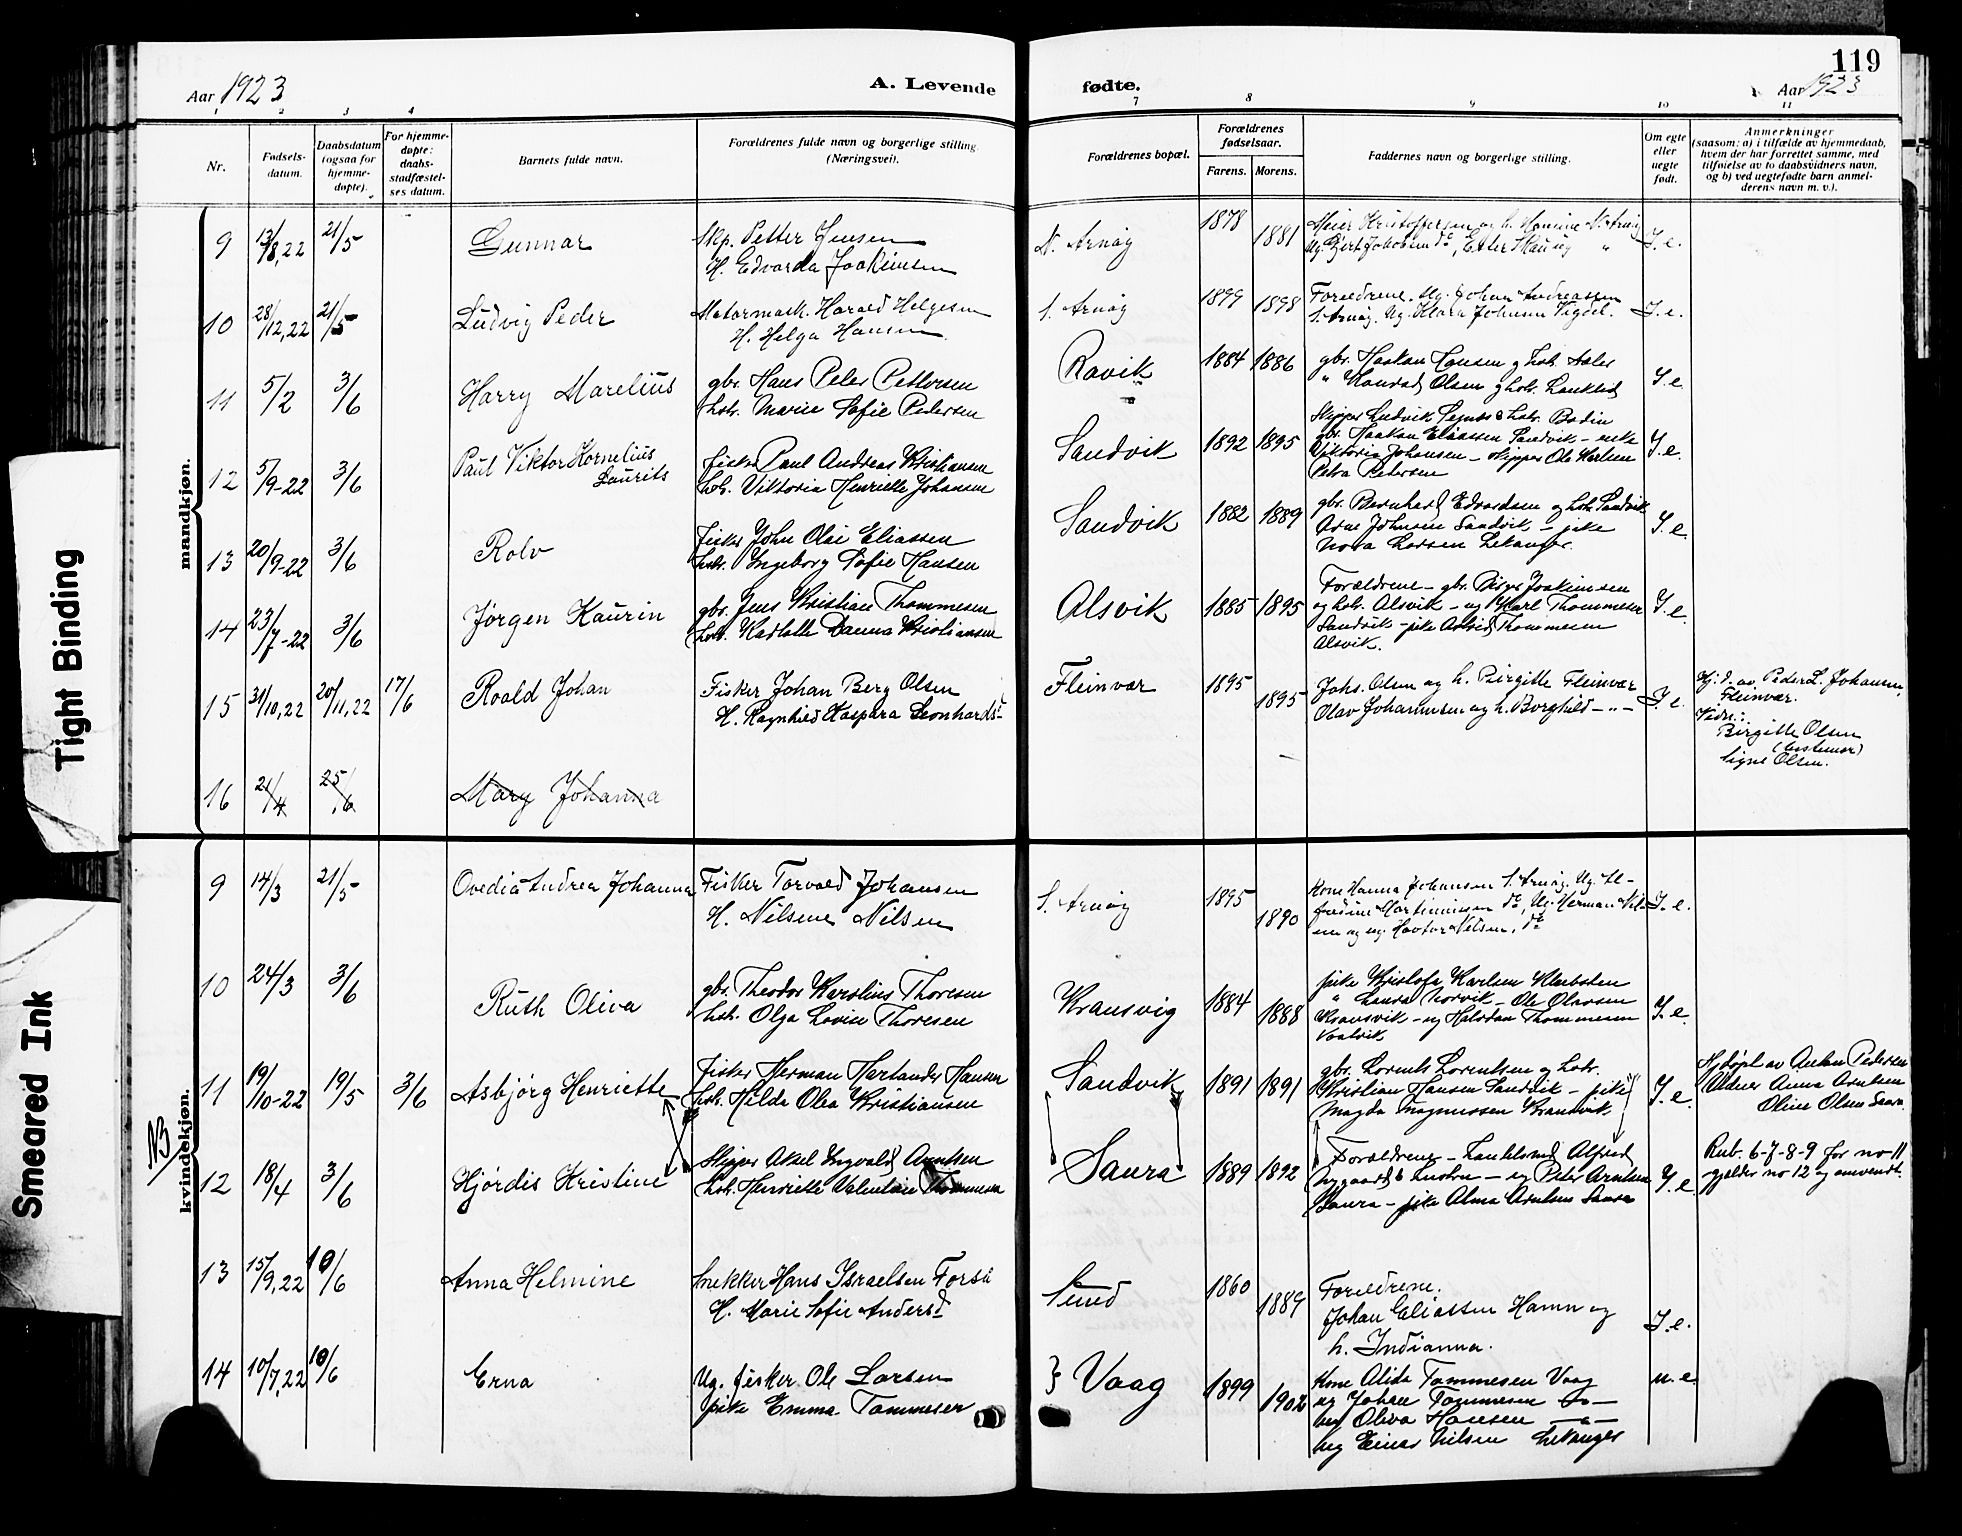 Tight Binding
Smeared Ink
Aar 1923
A. Levende
fødte.
119
Aar 1923
1 2 3 4
7 8 9 10 11
Nr.
Fødsels-
datum.
Daabsdatum
(ogsaa for
hjemme-
døpte).
For hjemme-
døpte:
daabs-
stadfæstel-
ses datum.
Barnets fulde navn.
Forældrenes fulde navn og borgerlige stilling
(Næringsvei).
Forældrenes bopæl.
Forældrenes
fødselsaar.
Farens. Morens.
Faddernes navn og borgerlige stilling.
Om egte
eller
uegte
født.
Anmerkninger
(saasom: a) i tilfælde av hjemmedaab,
hvem der har forrettet samme, med
tilføielse av to daabsvidners navn,
og b) ved uegtefødte barn anmel-
derens navn m. v.).
mandkjøn.
9 13/8,22 21/5 Gunnar
Skp. Petter Jensen
H. Edvarda Joakimsen
N. Arnøy 1878 1881
I. e.
10 28/12,22 21/5 Ludvig Peder
Motormask. Harald Helgesen
H. Helga Hansen
S. Arnøy 1899 1898
Forældrene. Ug. Johan Andreassen
S. Arnøy. Ug. Klara Johnsen Vigdel.
I. e.
11 5/2 3/6 Harry Marelius
gbr. Hans Peter Pettersen
hstr. Marie Sofie Pedersen
Ravik 1884 1886
gbr. Haakon Hansen og hstr.
" Konrad Olsen og hstr.
I. e.
12 5/9-22 3/6 Paul Viktor Kornelius
Laurits
Fisker Paul Andreas Kristiansen
hstr. Viktoria Henriette Johansen
Sandvik 1892 1895
gbr. Haakon Eliassen Sandvik - enke
Viktoria Johansen - skipper Ole Karlsen
Petra Petersen
I. e.
13 20/9-22 3/6 Rolv
Fisker John Olai Eliassen
hstr. Ingeborg Sofie Hansen
Sandvik 1882 1889
gbr. Bernhard Edvardsen og hstr. Sandvik
Arne Johnsen Sandvik - pike
Nora Larsen Lekanger.
I. e.
14 23/7-22 3/6 Jørgen Kaurin
gbr. Jens Kristian Thommesen
hstr. Danna Kristiansen
Alsvik 1885 1895
Forældrene - gbr. Birger Joakimsen
og hstr. Alsvik - ug Karl Thommesen
Sandvik - pike Astrid Thommesen
Alsvik.
I. e.
15 31/10,22 20/11,22 17/6 Roald Johan
Fisker Johan Berg Olsen
H. Ragnhild Kaspara Leonhardsd.
Fleinvær 1895 1895
Johs. Olsen og h. Birgitte Fleinvær
Olav Johannesen og h. Borghild - " -
I. e.
Hj. d. av Peder L. Johansen,
Fleinvær.
Vidn.:
Birgitte Olsen
(bestemor)
Signe Olsen.
16 21/4 25/6 Mary Johanna
kvindekjøn.
9 14/3 21/5 Ovedia Andrea Johanna
Fisker Torvald Johansen
H. Nilsine Nilsen
S. Arnøy 1895 1890
Kone Hanna Johansen S. Arnøy. Ug. Al-
I. e.
10 24/3 3/6 Ruth Oliva
gbr. Theodor Karolius Thoresen
hstr. Olga Lovise Thoresen
Kransvig 1884 1888
pike Kristofa Karlsen
" Laura Norvik - Ole Olavsen
Kransvik - ug Halvdan Thommesen
I. e.
11 19/10-22 19/5 3/6 Asbjørg Henriette
Fisker Herman Hartander Hansen
hstr. Hilda Olea Kristiansen
Sandvik 1891 1891
gbr. Lorents Lorentsen og hstr.
Kristian Hansen Sandvik - pike
Magda Magnussen Kransvik
I. e.
Hjdøpt av Anton Pedersen
Vidner Anna Arntsen
Oline Olsen Saura
NB
12 18/4 3/6 Hjørdis Kristine
Skipper Aksel Ingvald Arntsen
hstr. Henriette Valentine Thommesen
Saura 1889 1892
Forældrene - Alfred
Nygaard - ug Peter Arntsen
Saura - pike Alma Arntsen Saura
I. e.
Rub. 6-7-8-9 for no 11
gjelder no 12 og omvendt.
13 15/9,22 10/6 Anna Helmine
Snekker Hans Israelsen Forså
H. Marie Sofie Andersd.
Sund 1860 1889
Forældrene.
Johan Eliassen Hamn og
h. Indianna.
I. e.
14 10/7,22 10/6 Erna
Ug. fisker Ole Larsen
pike Emma Tommesen
} Vaag 1899 1902
Kone Alida Tommesen Vaag
ug Johan Tommesen - " -
ug Oliva Hansen - " -
ug Einar Nilsen Lekanger
u. e.